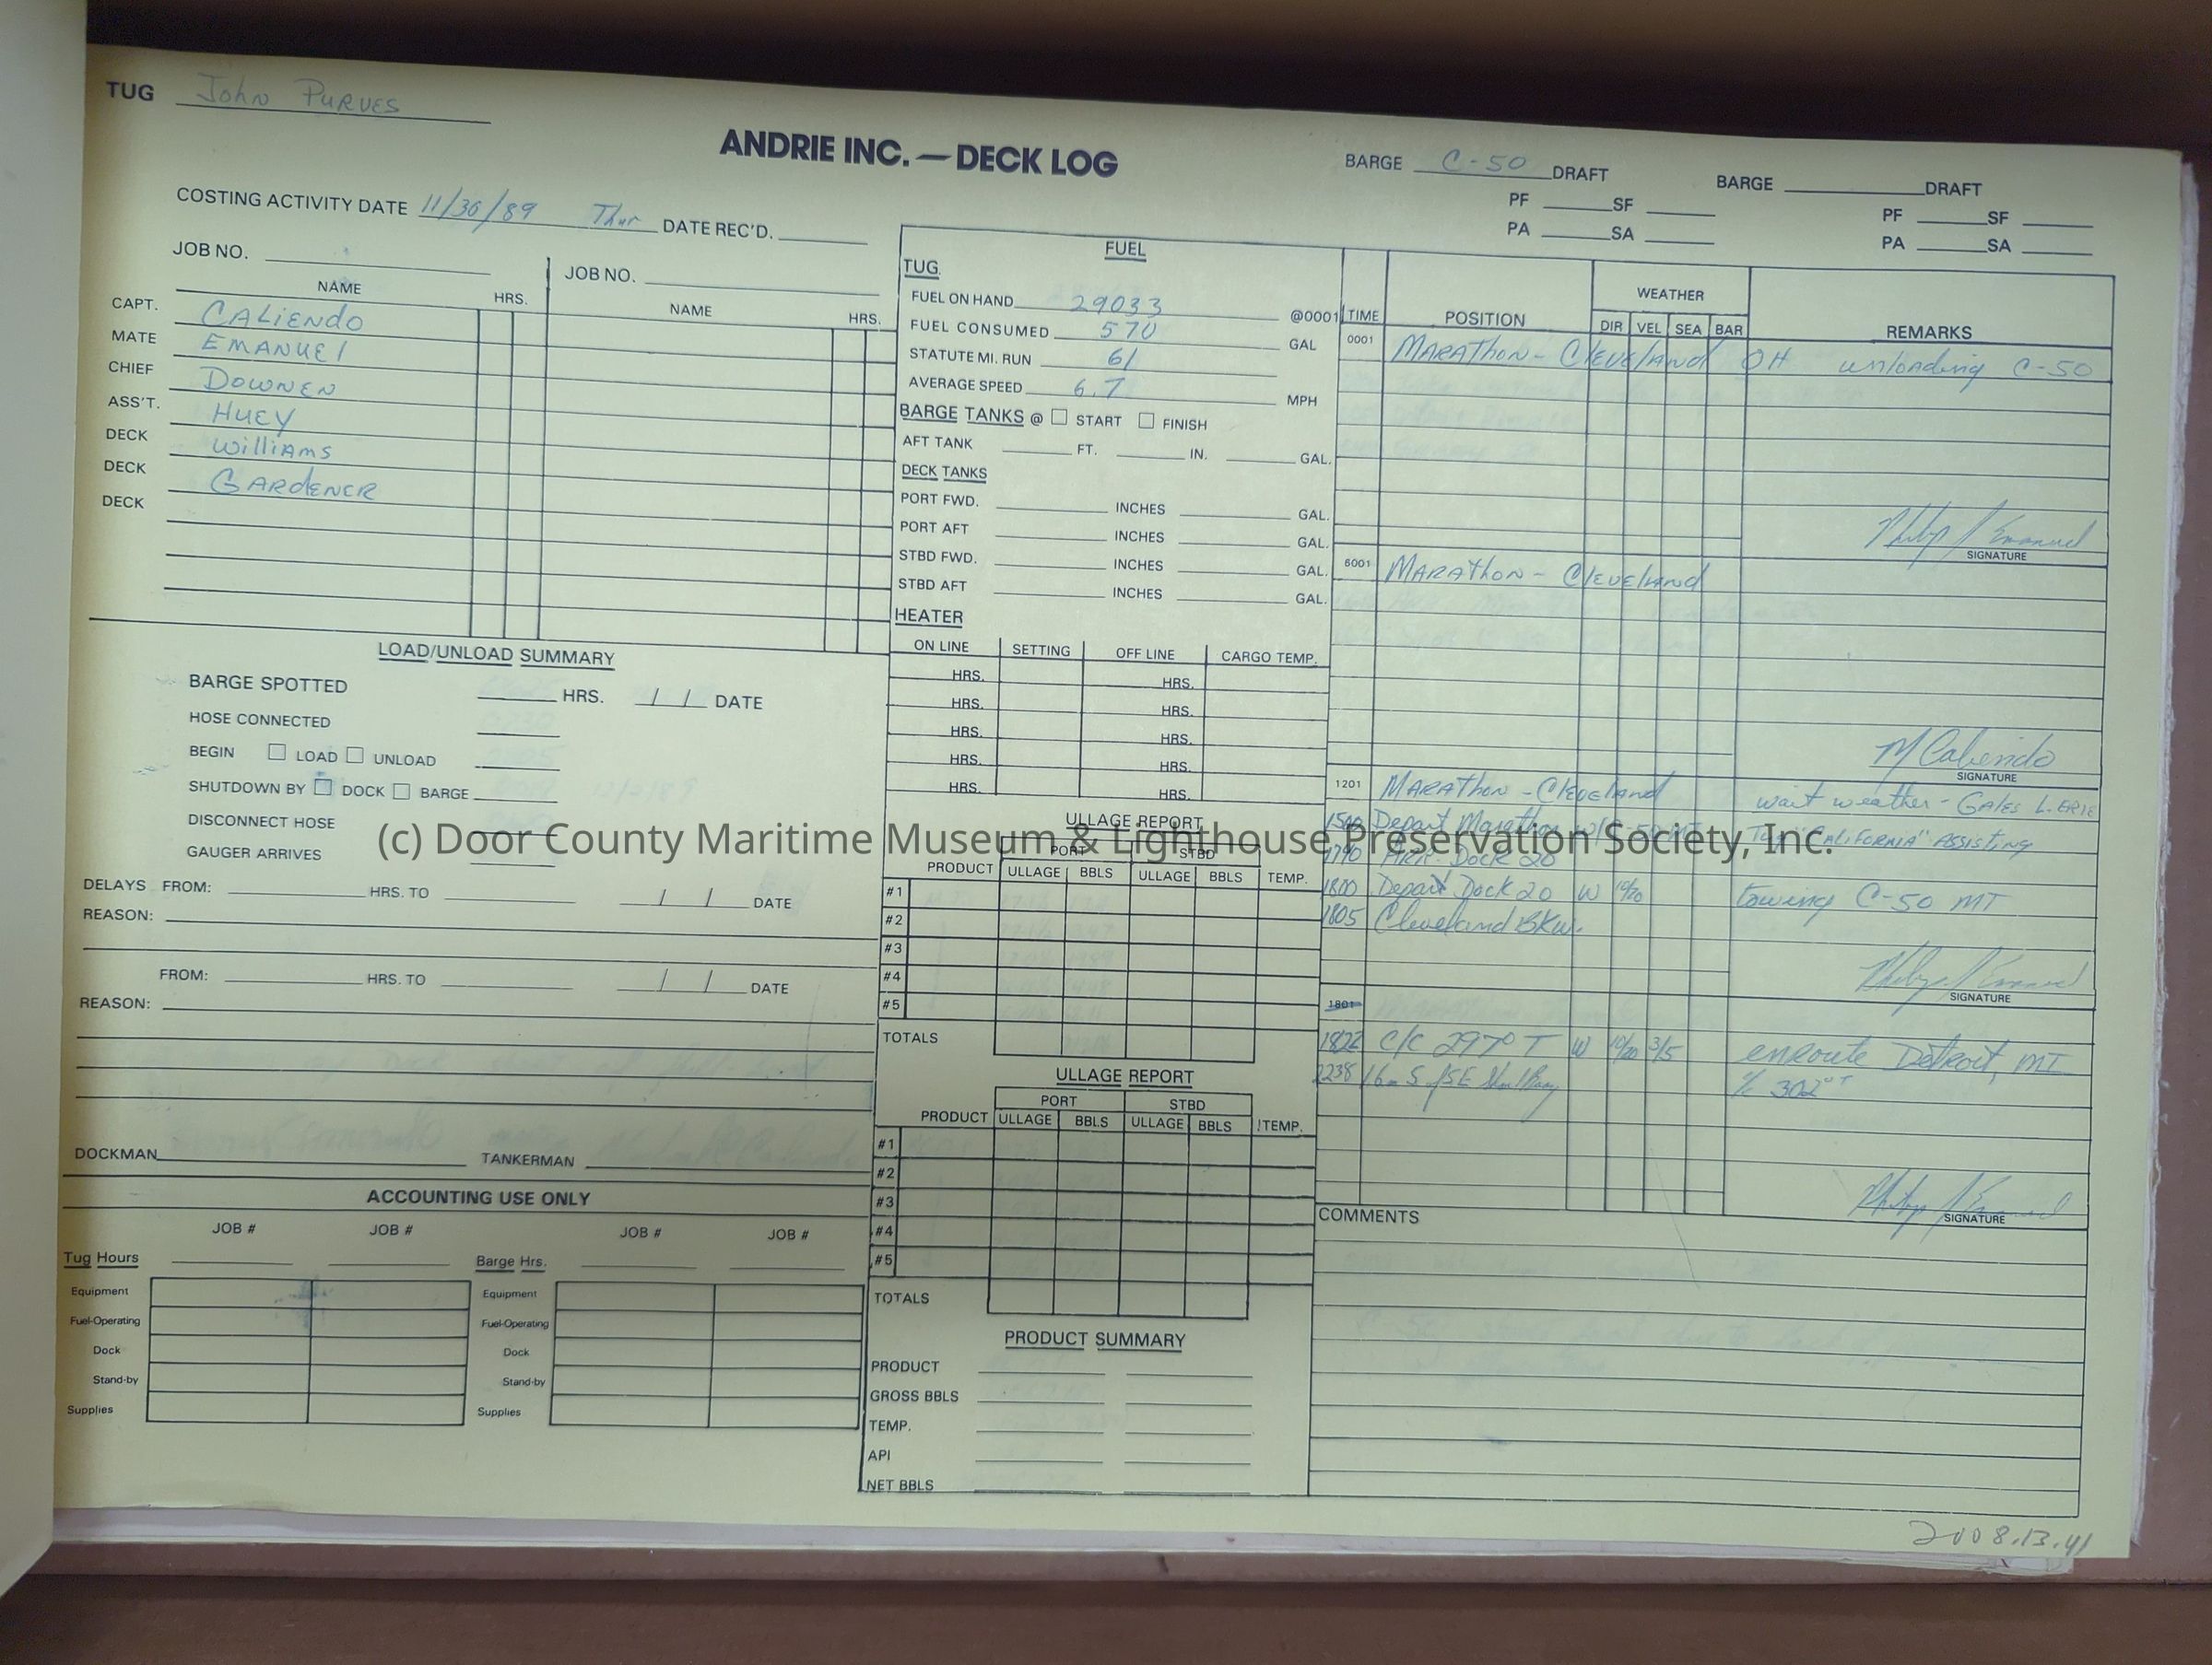 TUG John PURVES
ANDRIE INC. — DECK LOG
BARGE C-50 DRAFT
PF ____ SF ____
PA ____ SA ____
BARGE ____ DRAFT
PF ____ SF ____
PA ____ SA ____
COSTING ACTIVITY DATE 11/30/89 Thur DATE REC'D.
JOB NO.
JOB NO.
NAME HRS. NAME HRS.
CAPT. CALIENDO
MATE EMANUEl
CHIEF DOWNEN
ASS'T. HUEY
DECK WilliAms
DECK GARdENER
DECK
LOAD/UNLOAD SUMMARY
BARGE SPOTTED ____ HRS. / / DATE
HOSE CONNECTED
BEGIN ☐ LOAD ☐ UNLOAD
SHUTDOWN BY ☐ DOCK ☐ BARGE
DISCONNECT HOSE
GAUGER ARRIVES
DELAYS FROM: ____ HRS. TO ____ / / DATE
REASON:
FROM: ____ HRS. TO ____ / / DATE
REASON:
DOCKMAN ____ TANKERMAN
ACCOUNTING USE ONLY
JOB # JOB # JOB # JOB #
Tug Hours Barge Hrs.
Equipment Equipment
Fuel-Operating Fuel-Operating
Dock Dock
Stand-by Stand-by
Supplies Supplies
FUEL
TUG
FUEL ON HAND 29033 @0001
FUEL CONSUMED 570 GAL
STATUTE MI. RUN 61
AVERAGE SPEED 6.7 MPH
BARGE TANKS @ ☐ START ☐ FINISH
AFT TANK ____ FT. ____ IN. ____ GAL.
DECK TANKS
PORT FWD. ____ INCHES ____ GAL.
PORT AFT ____ INCHES ____ GAL.
STBD FWD. ____ INCHES ____ GAL.
STBD AFT ____ INCHES ____ GAL.
HEATER
ON LINE SETTING OFF LINE CARGO TEMP.
HRS. HRS.
HRS. HRS.
HRS. HRS.
HRS. HRS.
HRS. HRS.
ULLAGE REPORT
PORT STBD
PRODUCT ULLAGE BBLS ULLAGE BBLS TEMP.
#1
#2
#3
#4
#5
TOTALS
ULLAGE REPORT
PORT STBD
PRODUCT ULLAGE BBLS ULLAGE BBLS TEMP.
#1
#2
#3
#4
#5
TOTALS
PRODUCT SUMMARY
PRODUCT
GROSS BBLS
TEMP.
API
NET BBLS
WEATHER
TIME POSITION DIR VEL SEA BAR REMARKS
0001 MARAthon - CleVElANd OH unloading C-50
SIGNATURE Philip J Emanuel
6001 MARAthon - ClEVElANd
M Caliendo
SIGNATURE
1201 MARAthon - ClEVElANd wait weather - GAlES L. ERIE
Depart Marathon Tug "CALIFORNIA" ASSiSting
ARR. Dock 20
1800 Depart Dock 20 W towing C-50 MT
1805 Cleveland BKW.
SIGNATURE Philip J Emanuel
1801
1822 C/C 297° T W 3/5 enroute Detroit, MI
2238 302° T
SIGNATURE Philip J Emanuel
COMMENTS
2008.13.41
(c) Door County Maritime Museum & Lighthouse Preservation Society, Inc.